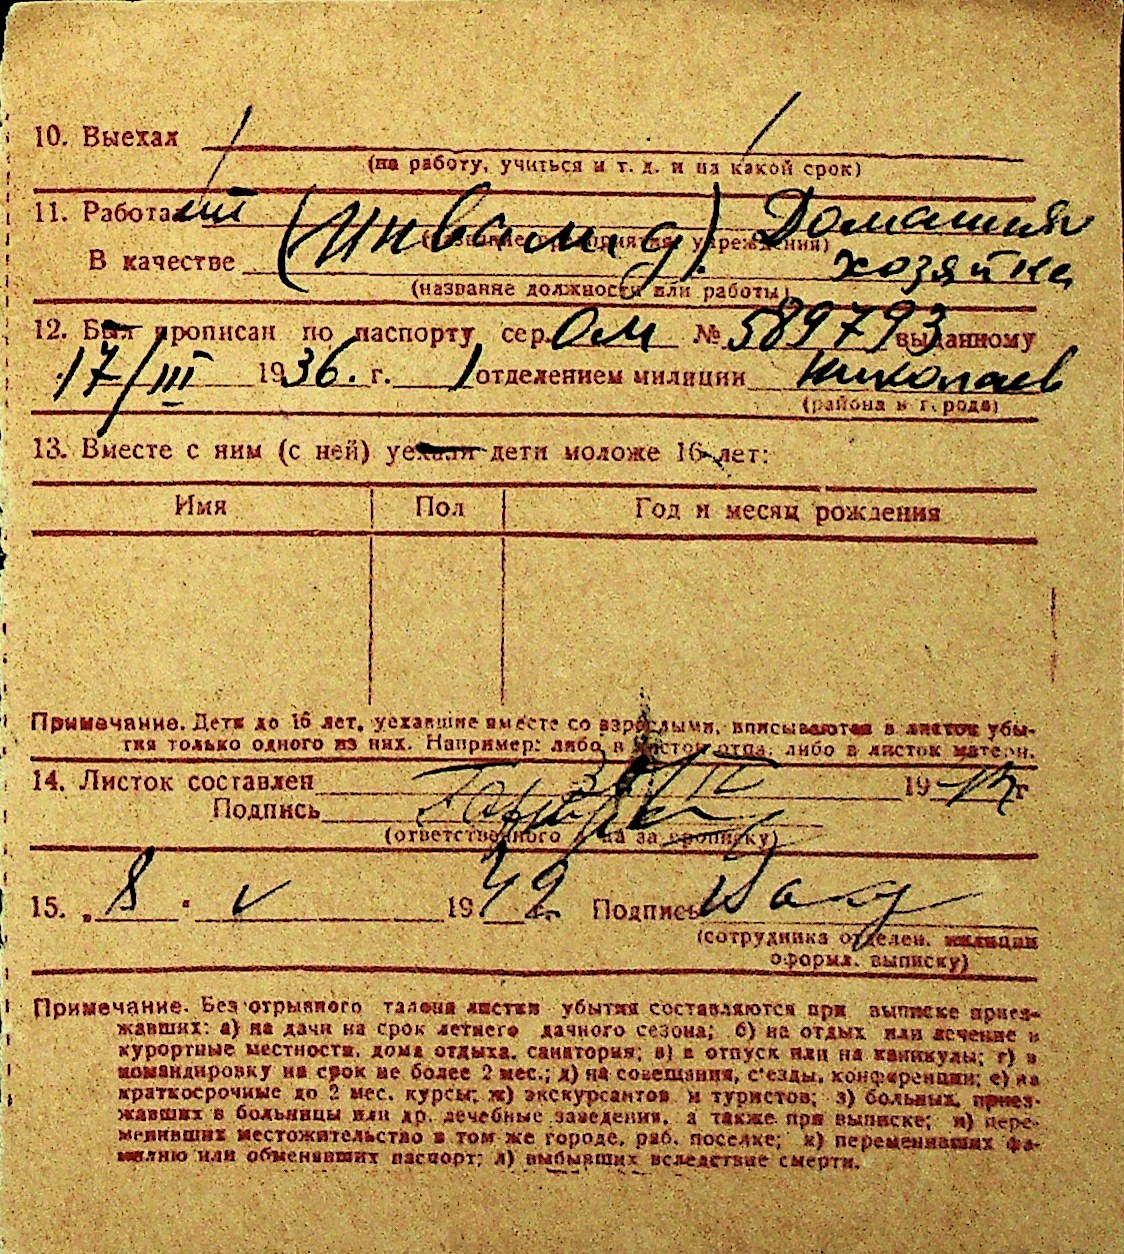 10. Выехал
(на работу, учиться и т. д. и на какой срок)
11. Работал (Инвалид) Домашняя
(название предприятия, учреждения)
В качестве хозяйка
(название должности или работы)
12. Был прописан по паспорту сер. ОМ № 589793 выданному
17/III 1936. г. 1 отделением милиции Николаев
(района и города)
13. Вместе с ним (с ней) уехали дети моложе 16 лет:
Имя Пол Год и месяц рождения
Примечание. Дети до 16 лет, уехавшие вместе со взрослыми, вписываются в листок убы-
тия только одного из них. Например: либо в листок отца, либо в листок матери.
14. Листок составлен 19 г
Подпись
(ответственного за прописку)
15. „8" V 1942 г. Подпись
(сотрудника отделен. милиции
оформл. выписку)
Примечание. Без отрывного талона листки убытия составляются при выписке приез-
жавших: а) на дачи на срок летнего дачного сезона; б) на отдых или лечение в
курортные местности, дома отдыха, санатория; в) в отпуск или на каникулы; г) в
командировку на срок не более 2 мес.; д) на совещания, с'езды, конференции; е) на
краткосрочные до 2 мес. курсы; ж) экскурсантов и туристов; з) больных, приез-
жавших в больницы или др. лечебные заведения, а также при выписке; и) пере-
менивших местожительство в том же городе, раб. поселке; к) переменивших фа-
милию или обменявших паспорт; л) выбывших вследствие смерти.